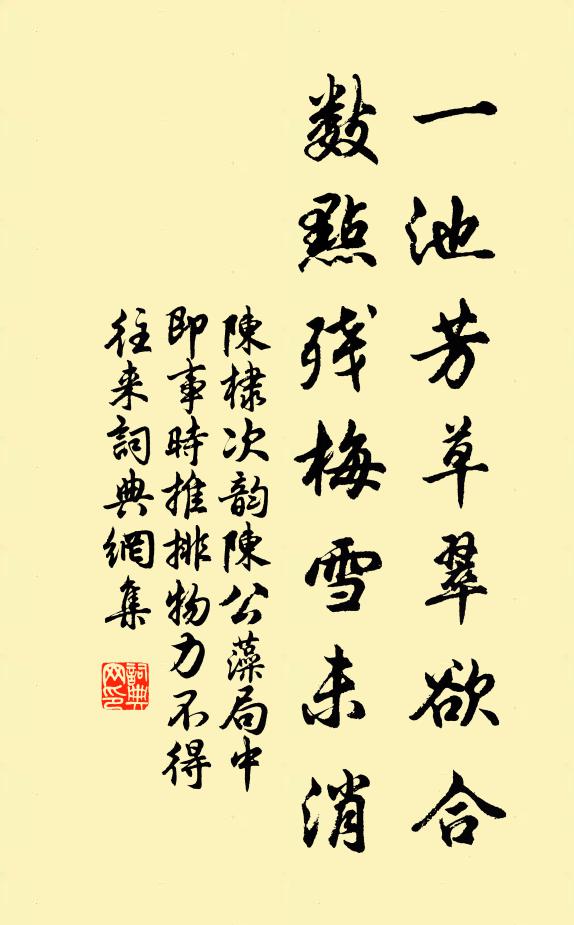 一池芳草翠欲合
數點残梅雪未消
陳棣次韵陳公藻局中
即事時推排物力不得
往来詞典網集
詞典網印